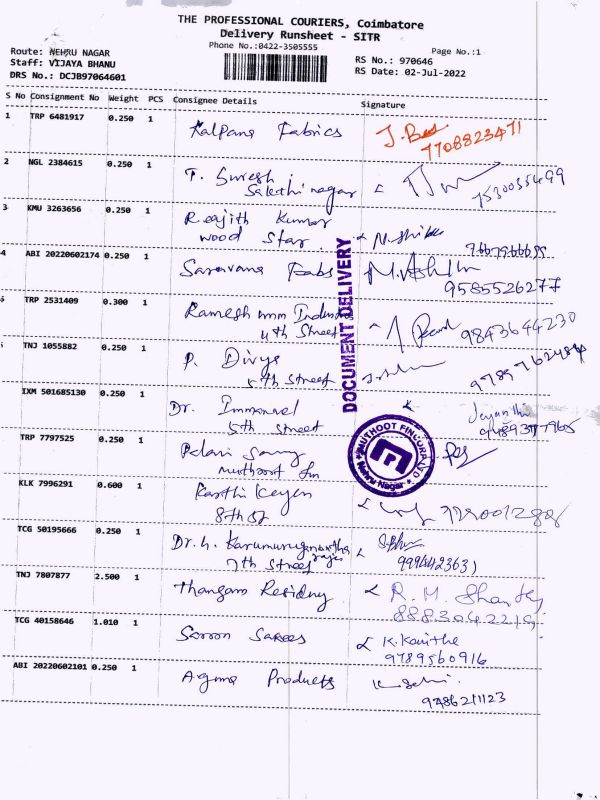 THE PROFESSIONAL COURIERS, Coimbatore
Delivery Runsheet - SITR
Phone No.:0422-3505555
Page No.:1
Route: NEHRU NAGAR
Staff: VIJAYA BHANU
DRS No.: DCJB97064601
RS No.: 970646
RS Date: 02-Jul-2022
S No Consignment No Weight PCS Consignee Details Signature
1 TRP 6481917 0.250 1 Kalpana Fabrics
7708823471
2 NGL 2384615 0.250 1 T. Suresh
Sakthi nagar
7530035499
3 KMU 3263656 0.250 1 Reajith Kumar
Wood Star
4 ABI 20220602174 0.250 1 Saravana Fabs
9585526277
TRP 2531409 0.300 1 Ramesh mm
4th Street
9843644230
TNJ 1055882 0.250 1 P. Divya
5th Street
IXM 501685130 0.250 1 Dr. Immanuel
5th Street
TRP 7797525 0.250 1 Palani Samy
muthoot fin
KLK 7996291 0.600 1 Karthi Keyen
8th St
TCG 50195666 0.250 1
7th Street
9996423631
TNJ 7807877 2.500 1 Thangam Residency
R. M. Shanthy
8883042219
TCG 40158646 1.010 1 Saron Sarees
K. Kavitha
9789560916
ABI 20220602101 0.250 1 Agma Products
9786211123
DOCUMENT DELIVERY
MUTHOOT FINCORP LTD
Nehru Nagar